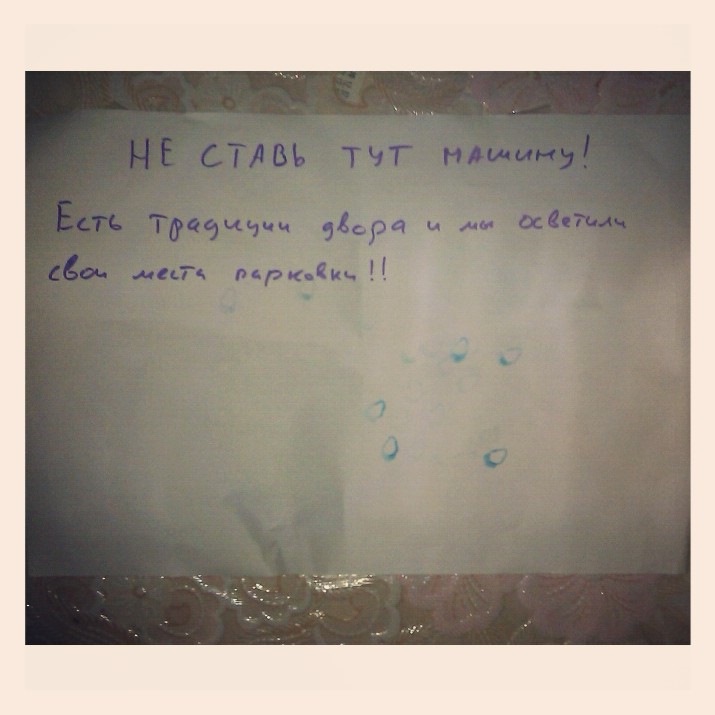 НЕ СТАВЬ ТУТ МАШИНУ!
Есть традиции двора и мы осветили
свои места парковки!!